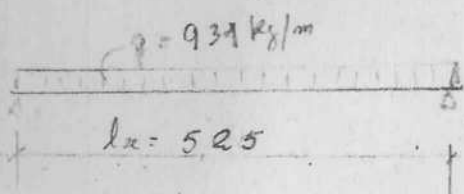 q = 931 kg/m
lx = 525